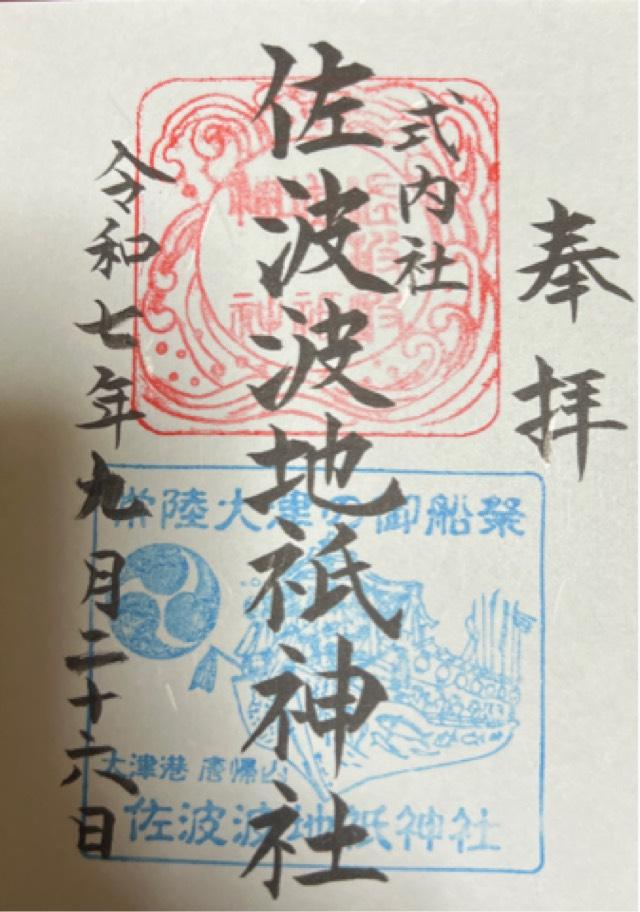 奉拝
式内社
佐波波地祇神社
令和七年九月二十六日
常陸大津の御船祭
大津港 唐帰山
佐波波地祇神社